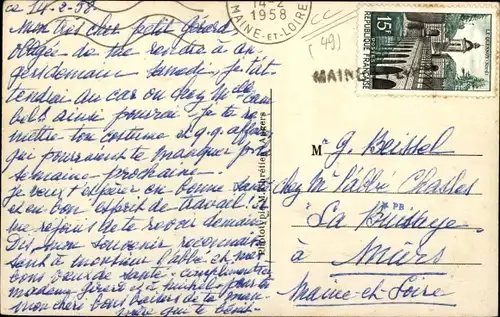 ce 14-2-58
Mon très cher petit Gérard
obligée de me rendre à
demain samedi, je t'at-
tendrai au car ou chez M.
ainsi pourrai je te re-
mettre ton costume et q.q. affaires
qui pourraient te manquer pour la
semaine prochaine.
Je veux espérer en bonne santé
et en bon esprit de travail!
me réjouis de te revoir demain
Dis mon souvenir reconnais-
sant à monsieur l'abbé et mes
bons vœux de santé. compliments à
madame et à michel pour toi
mon chéri bons baisers de ta man-
qui te bénit
14-2
1958
MAINE-ET-LOIRE
(49)
MAINE
15F
REPUBLIQUE FRANÇAISE
Phototypie M. Chrétien, Angers
M G. Beissel
chez Mr l'abbé Charles
La Buissaye
PB
à Miers
Maine-et-Loire